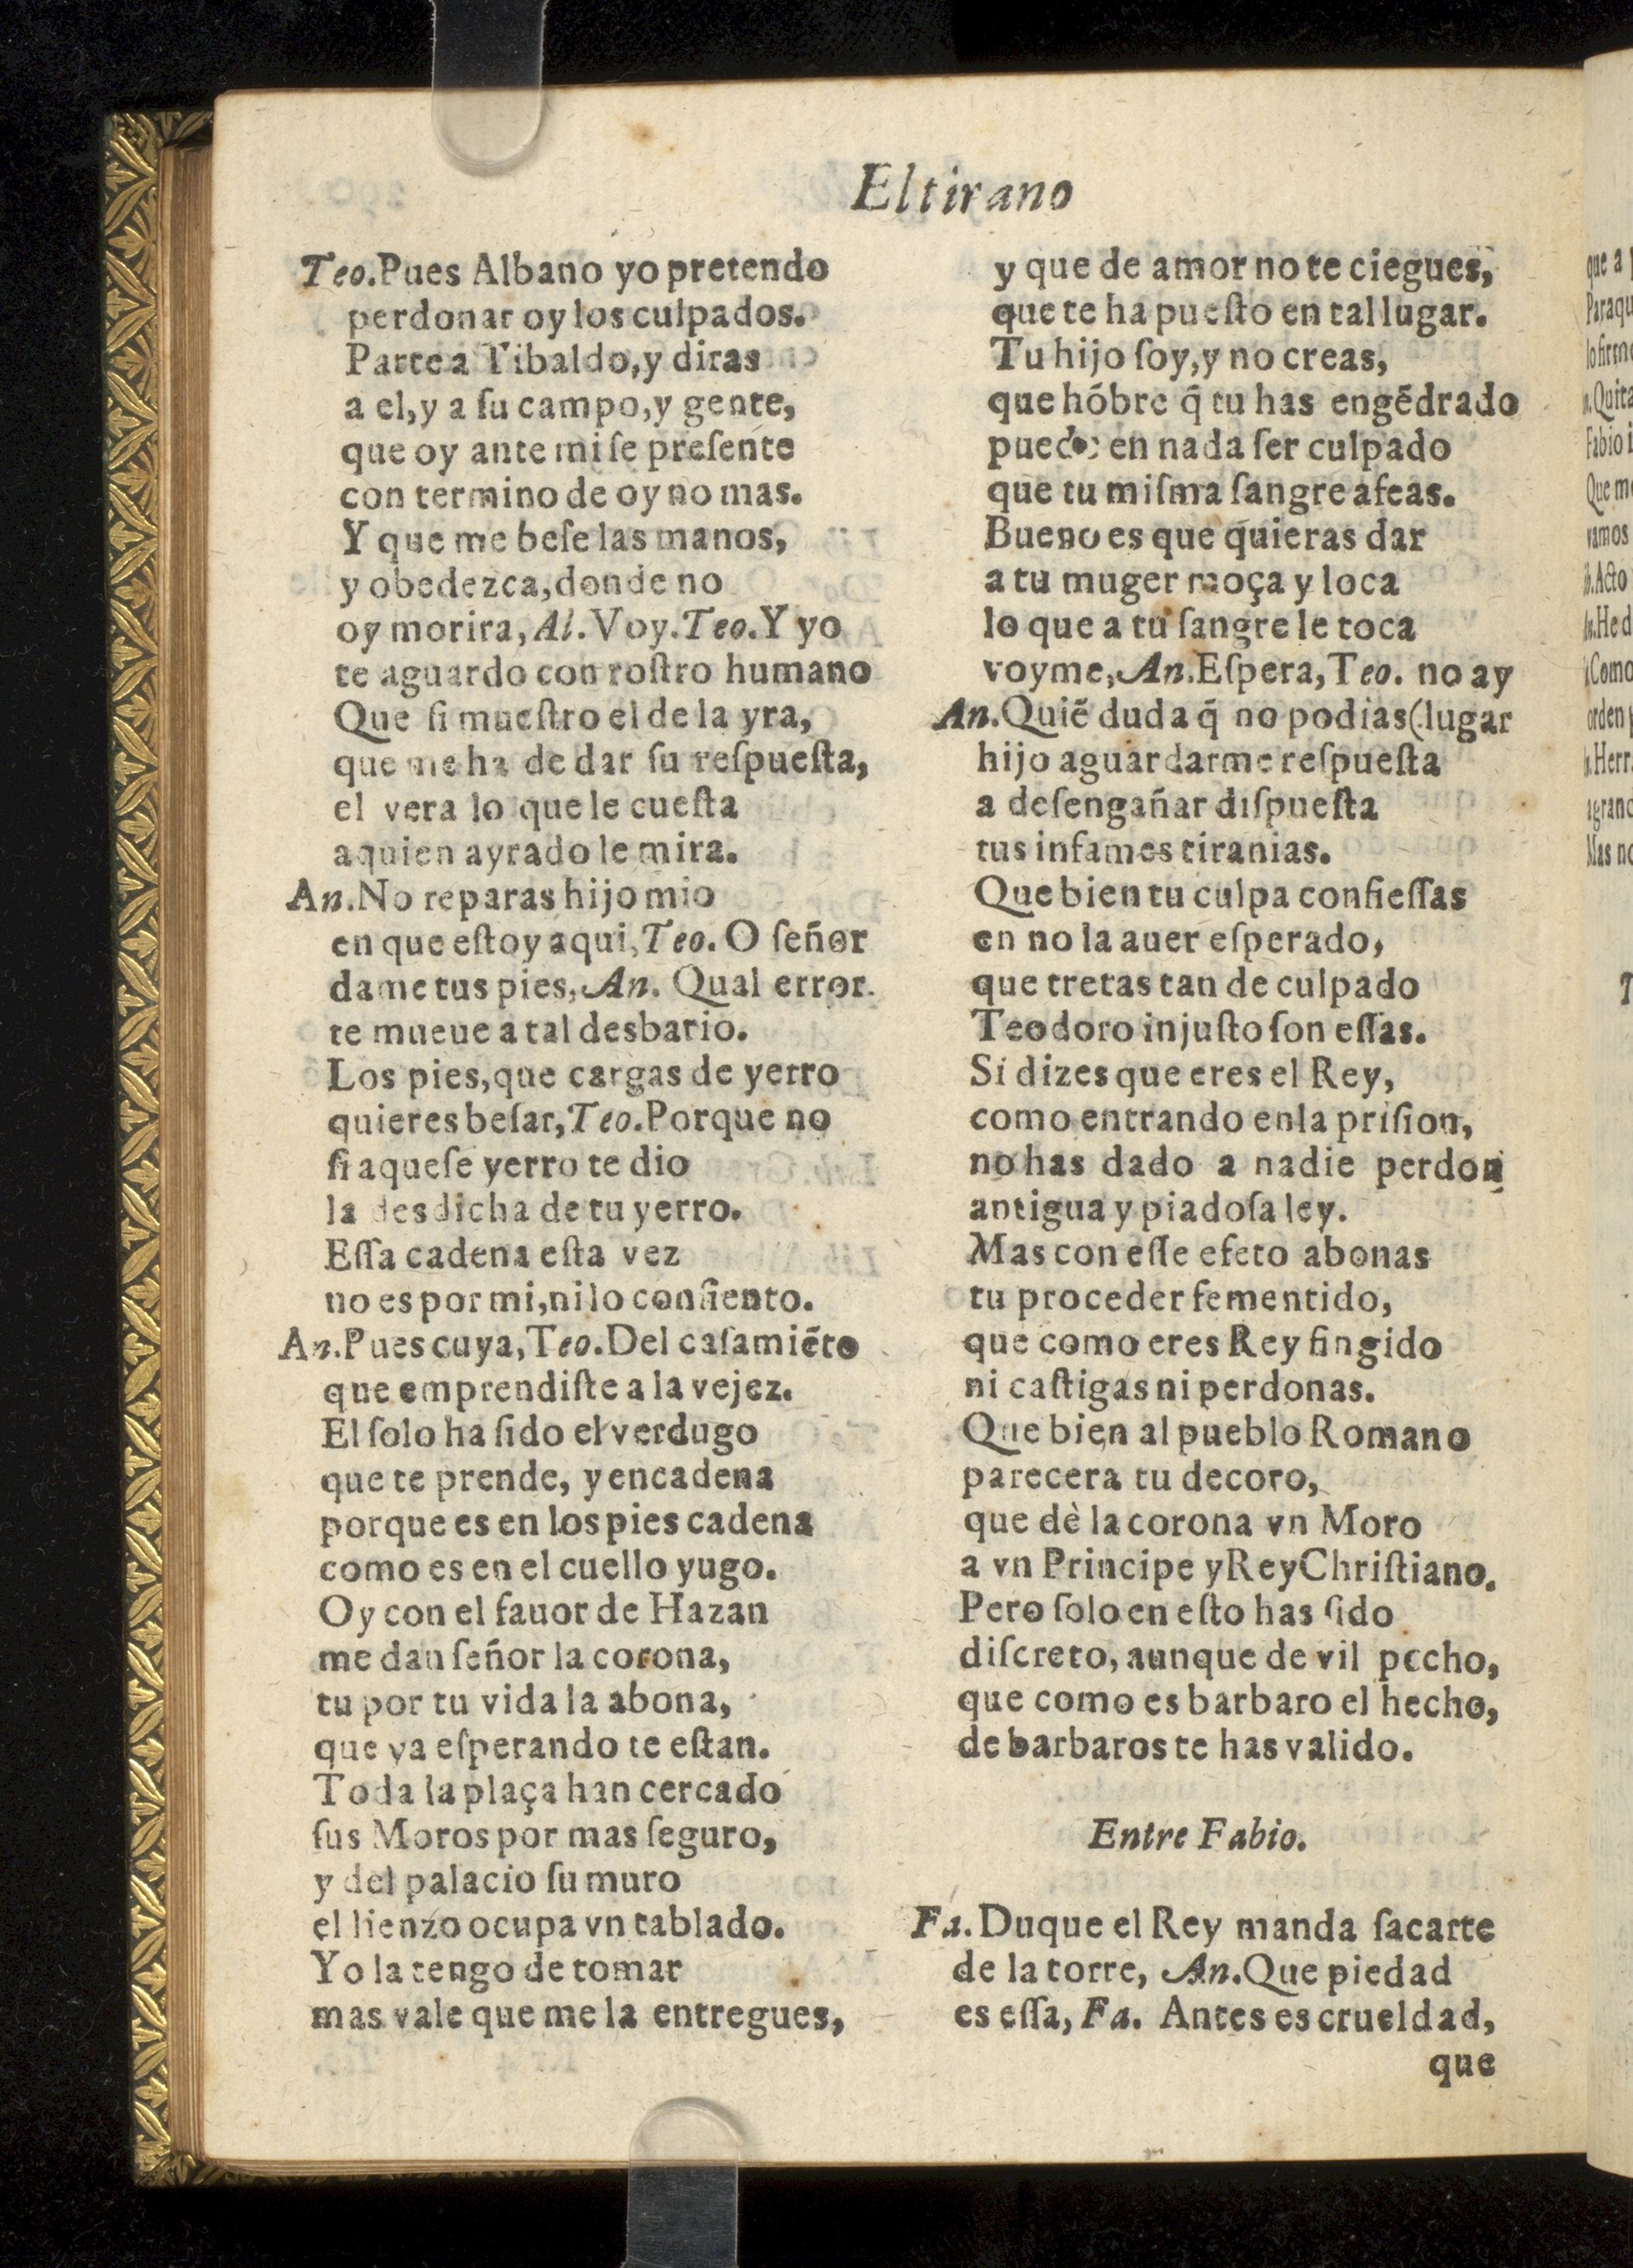 El tirano
Teo.Pues Albano yo pretendo
perdonar oy los culpados.
Parte a Tibaldo,y diras
a el,y a ſu campo,y gente,
que oy ante mi ſe preſente
con termino de oy no mas.
Y que me beſe las manos,
y obedezca,donde no
oy morira, Al.Voy.Teo.Y yo
te aguardo con roſtro humano
Que ſi mueſtro el de la yra,
que me ha de dar ſu reſpueſta,
el vera lo que le cueſta
aquien ayrado le mira.
An.No reparas hijo mio
en que eſtoy aqui,Teo. O ſeñor
dame tus pies, An. Qual error.
te mueue a tal desbario.
Los pies,que cargas de yerro
quieres beſar,Teo.Porque no
ſi aqueſe yerro te dio
la desdicha de tu yerro.
Eſſa cadena eſta vez
no es por mi,ni lo conſiento.
An.Pues cuya,Teo.Del caſamiẽto
que emprendiſte a la vejez.
El ſolo ha ſido el verdugo
que te prende, y encadena
porque es en los pies cadena
como es en el cuello yugo.
Oy con el fauor de Hazan
me dan ſeñor la corona,
tu por tu vida la abona,
que ya eſperando te eſtan.
Toda la plaça han cercado
ſus Moros por mas ſeguro,
y del palacio ſu muro
el lienzo ocupa vn tablado.
Yo la tengo de tomar
mas vale que me la entregues,
y que de amor no te ciegues,
que te ha pueſto en tal lugar.
Tu hijo ſoy,y no creas,
que hóbre q̃ tu has engẽdrado
puede en nada ſer culpado
que tu miſma ſangre afeas.
Bueno es que quieras dar
a tu muger moça y loca
lo que a tu ſangre le toca
voyme, An.Eſpera,Teo. no ay
An.Quiẽ duda q̃ no podias(lugar
hijo aguardarme reſpueſta
a deſengañar diſpueſta
tus infames tiranias.
Que bien tu culpa confieſſas
en no la auer eſperado,
que tretas tan de culpado
Teodoro injuſto ſon eſſas.
Si dizes que eres el Rey,
como entrando enla priſion,
no has dado a nadie perdon
antigua y piadoſa ley.
Mas con eſſe efeto abonas
tu proceder fementido,
que como eres Rey fingido
ni caſtigas ni perdonas.
Que bien al pueblo Romano
parecera tu decoro,
que dè la corona vn Moro
a vn Principe yReyChriſtiano.
Pero ſolo en eſto has ſido
diſcreto, aunque de vil pecho,
que como es barbaro el hecho,
de barbaros te has valido.
Entre Fabio.
Fa.Duque el Rey manda ſacarte
de la torre, An.Que piedad
es eſſa, Fa. Antes es crueldad,
que
que a
Quita
Que me
vamos
.Acto
.He d
Como
orden
Mas no